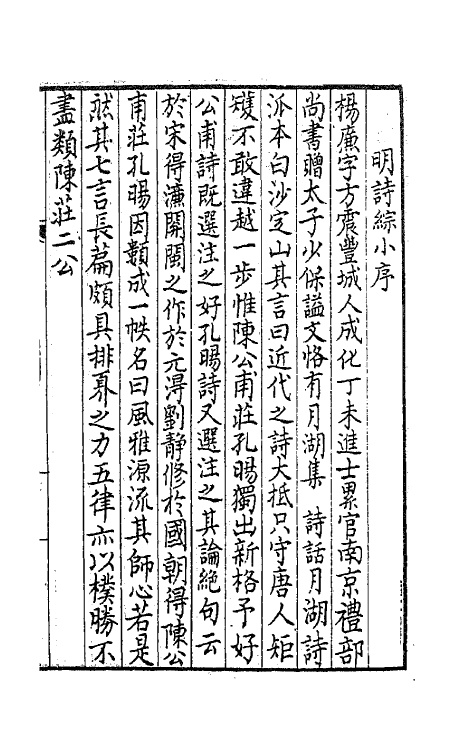 明詩綜小序
楊廉字方震豐城人成化丁未進士累官南京禮部
尚書贈太子少保謚文恪有月湖集 詩話月湖詩
派本白沙定山其言曰近代之詩大抵只守唐人矩
矱不敢違越一步惟陳公甫莊孔暘獨出新格予好
公甫詩既選注之好孔暘詩又選注之其論絶句云
於宋得濂開閩之作於元得劉静修於國朝得陳公
甫莊孔暘因纇成一帙名曰風雅源流其師心若是
然其七言長篇頗具排奡之力五律亦以樸勝不
盡類陳莊二公